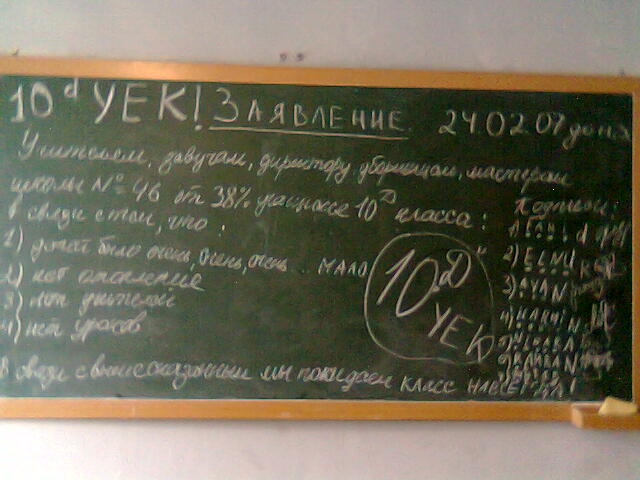 10 d УЕК! ЗАЯВЛЕНИЕ 24.02.07
Учителям, завучам, директору, уборщицам, мастерам
школы № 46 от 38% учащихся 10 D класса:
в связи с тем, что:
1) детей было очень, очень, очень... МАЛО
2) нет отопления
3) нет учителей
4) нет уроков
В связи с вышесказанным мы покидаем КЛАСС НАВСЕГДА!
10 D
УЕК
Подписи:
1)
2) ELMI
3) AYAN
4)
5)
6)